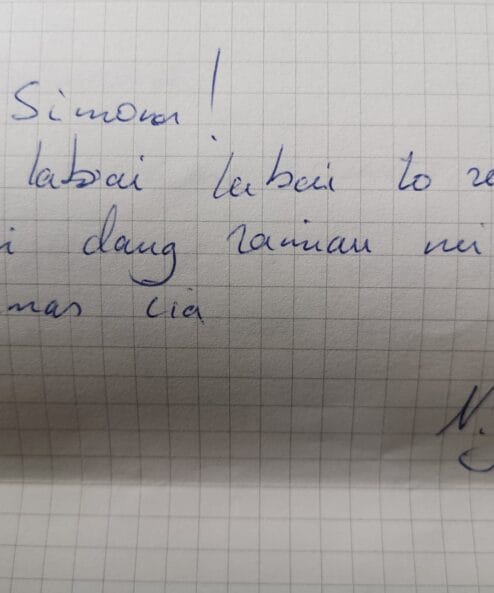 Simona!
labai labai to
i dang ramiau nei
mas čia
N.